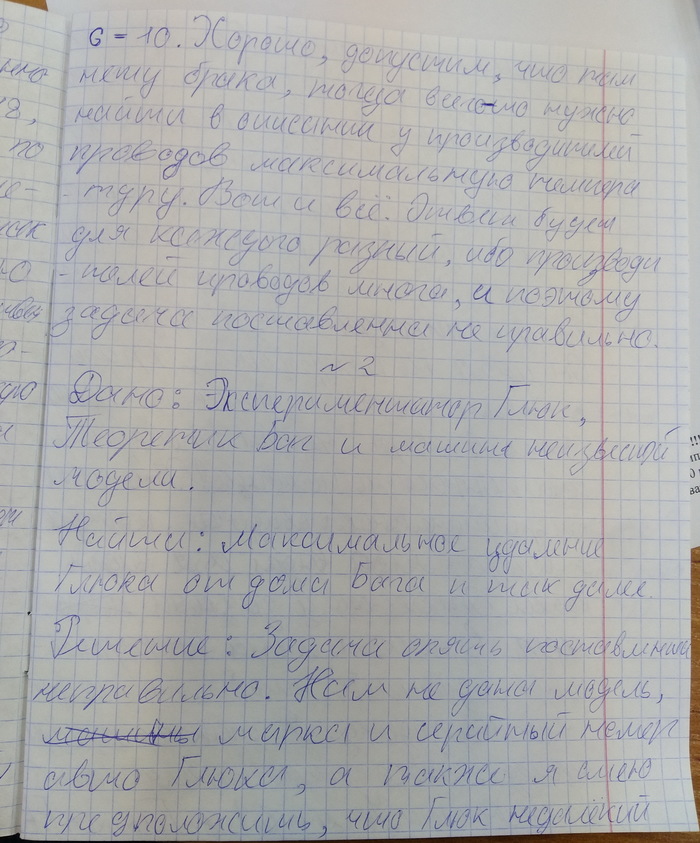 6 = 10. Хорошо, допустим, что там
нету брака, тогда всего нужно
найти в описании у производителей
проводов максимальную темпера
- туру. Вот и всё. Ответ будет
для каждого разный, ибо производи
- телей проводов многа, и поэтому
задача поставленна не правильно.
№ 2
Дано: Экспериментатор Глюк,
Теоретик Баг и машина неизвесной
модели.
Найти: Максимальное удаление
Глюка от дома Бага и так далее.
Решение: Задача опять поставленна
неправильно. Нам не дана модель,
марка и серийный номер
авто Глюка, а также я смею
предположить, что Глюк недалёкий